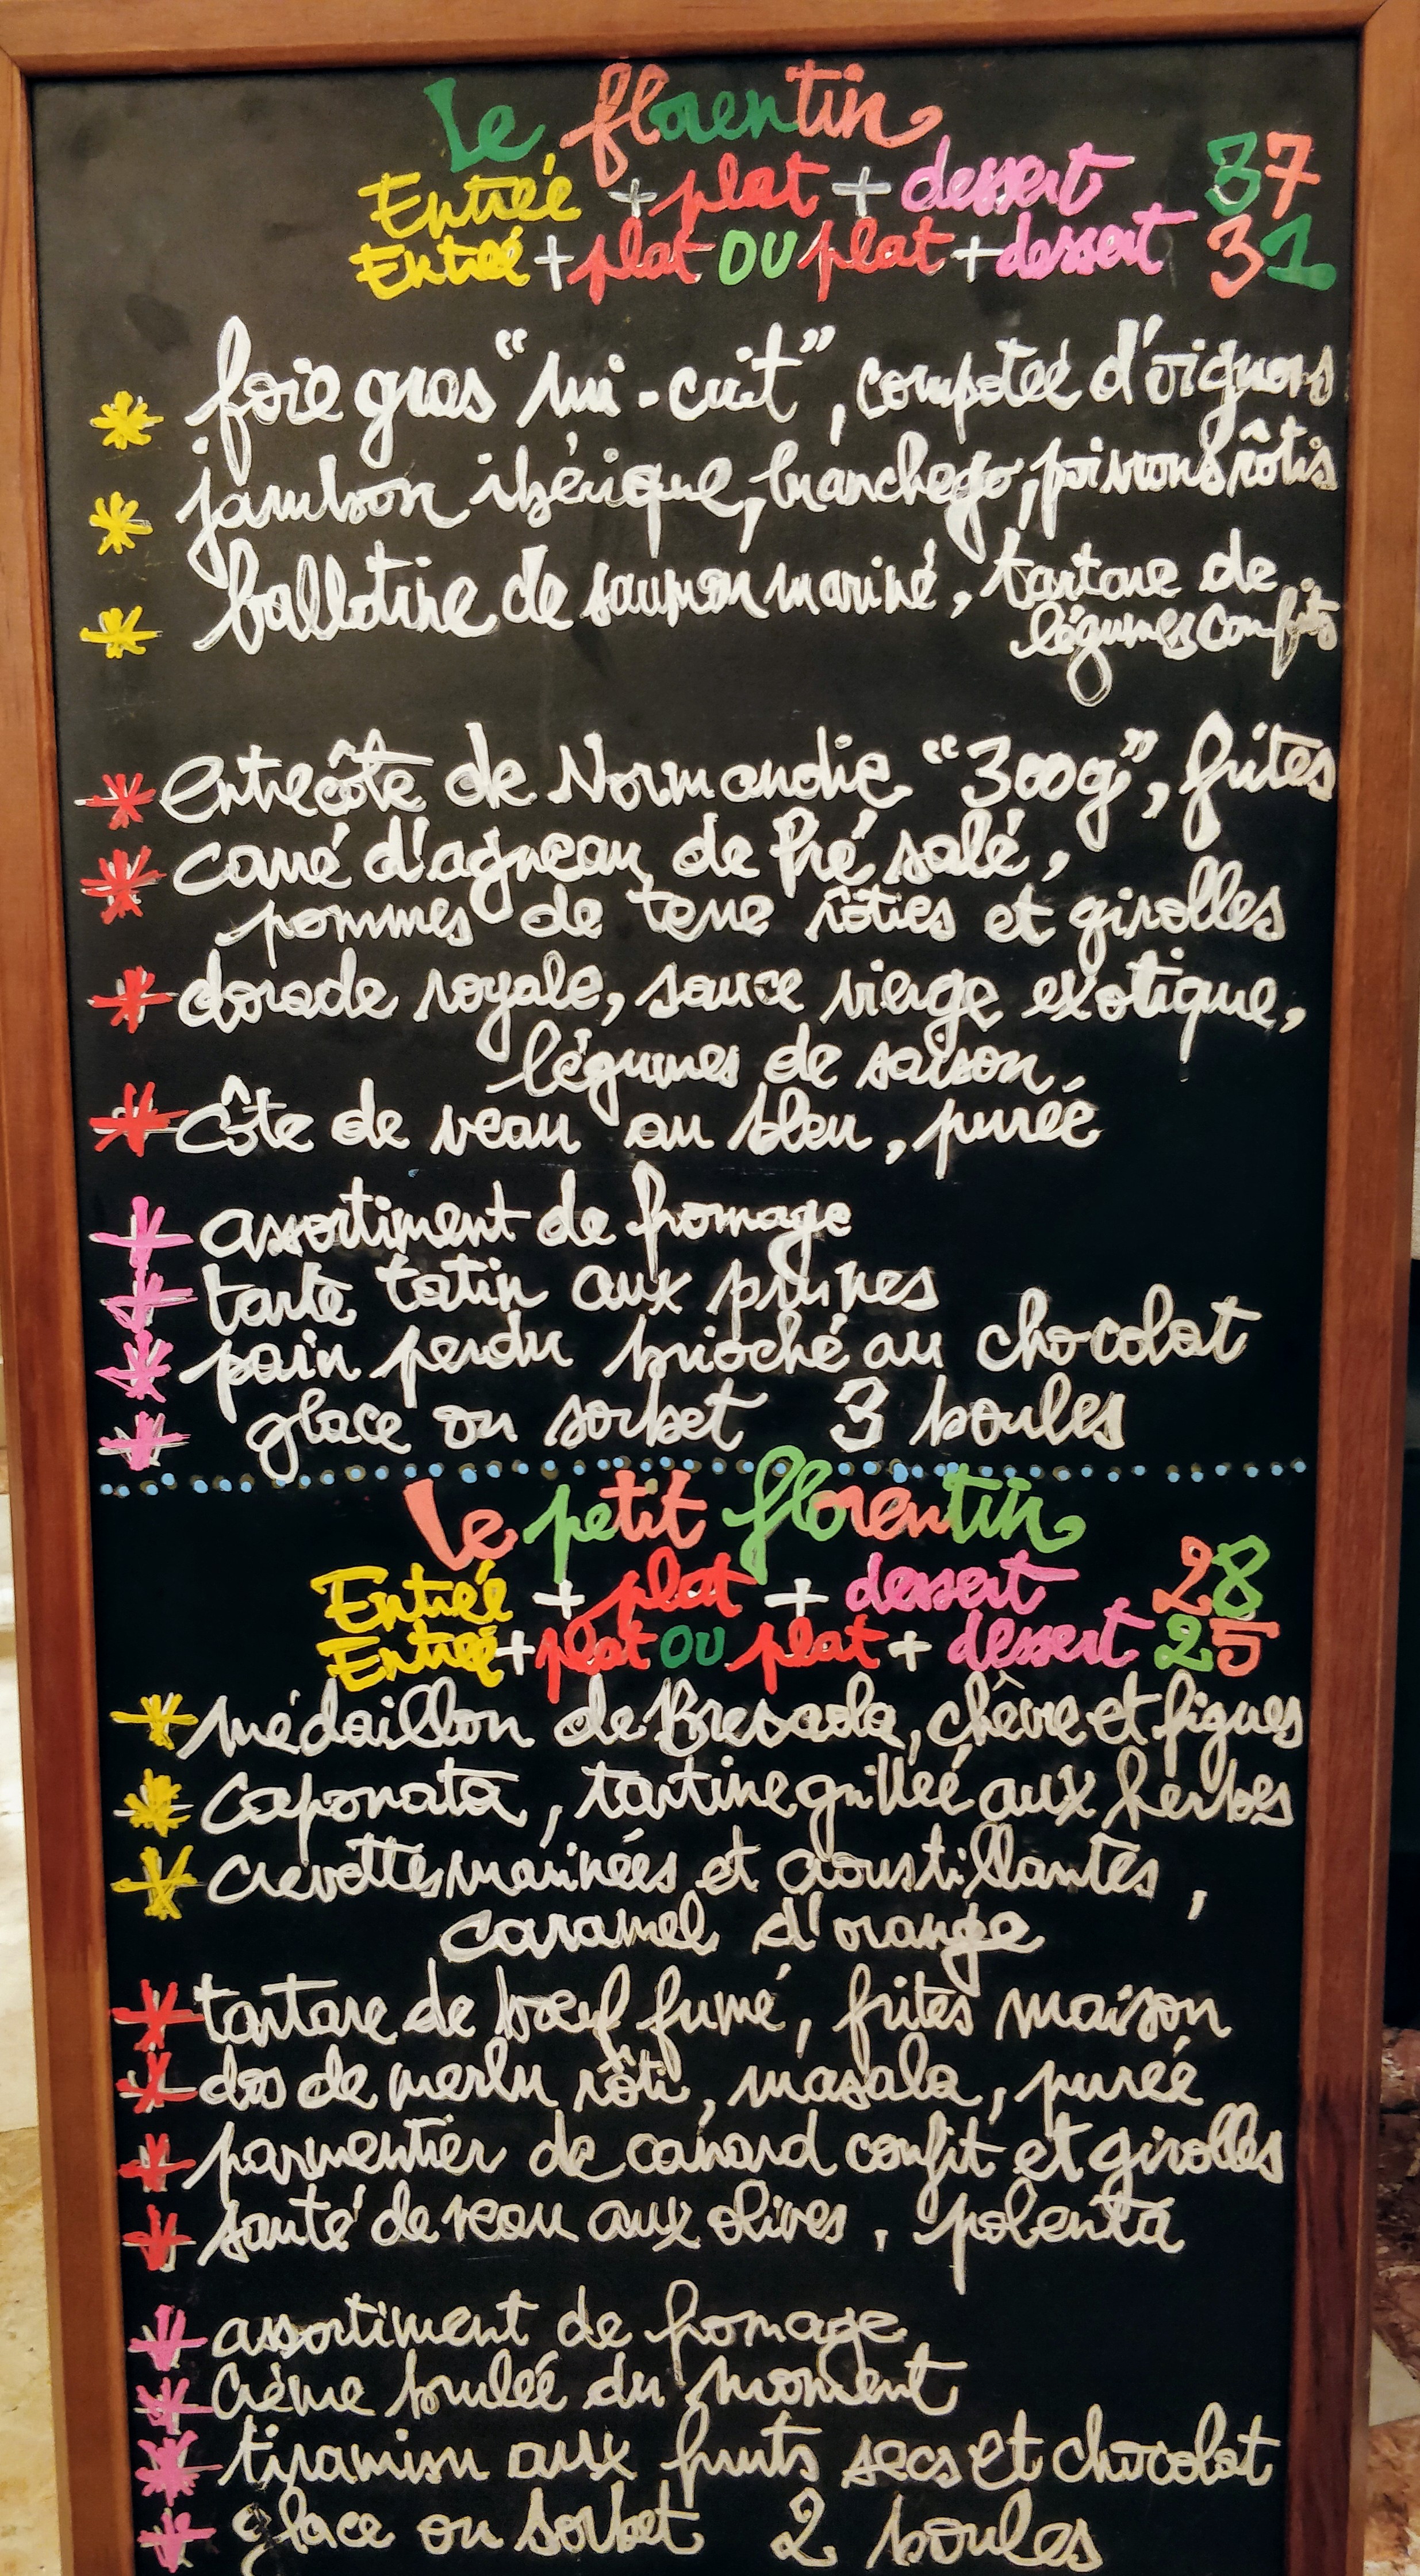 Le florentin
Entrée + plat + dessert 37
Entrée + plat OU plat + dessert 31
foie gras "mi-cuit", compotée d'oignons
jambon ibérique, manchego, poivrons rôtis
ballotine de saumon mariné, tartare de
légumes confits
entrecôte de Normandie "300g", frites
carré d'agneau de Pré salé,
pommes de terre rôties et girolles
dorade royale, sauce vierge exotique,
légumes de saison
côte de veau au bleu, purée
assortiment de fromage
tarte tatin aux prunes
pain perdu brioché au chocolat
glace ou sorbet 3 boules
Le petit florentin
Entrée + plat + dessert 28
Entrée + plat OU plat + dessert 25
médaillon de Bresaola, chèvre et figues
caponata, tartine grillée aux herbes
crevettes marinées et croustillantes,
caramel d'orange
tartare de bœuf fumé, frites maison
dos de merlu rôti, masala, purée
parmentier de canard confit et girolles
sauté de veau aux olives, polenta
assortiment de fromage
crème brulée du moment
tiramisu aux fruits secs et chocolat
glace ou sorbet 2 boules